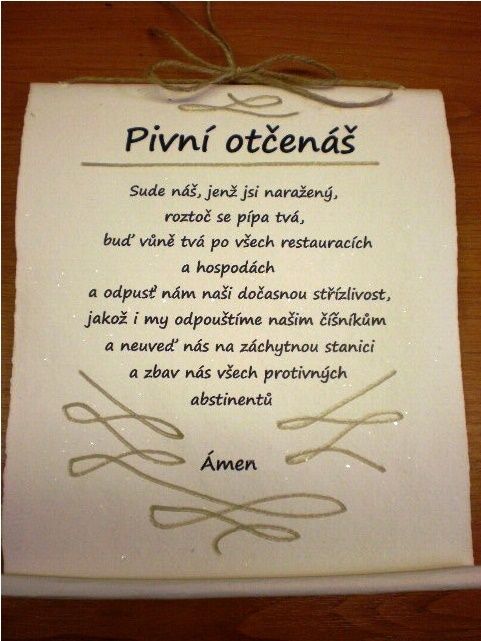 Pivní otčenáš
Sude náš, jenž jsi naražený,
roztoč se pípa tvá,
buď vůně tvá po všech restauracích
a hospodách
a odpusť nám naši dočasnou střízlivost,
jakož i my odpouštíme našim číšníkům
a neuveď nás na záchytnou stanici
a zbav nás všech protivných
abstinentů
Ámen